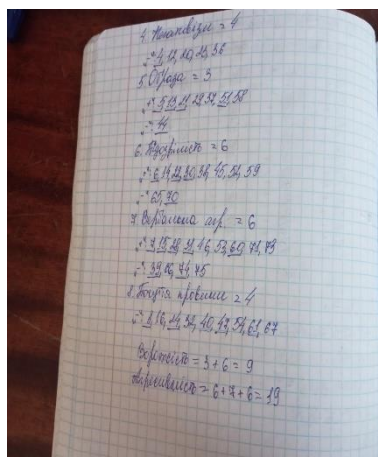 4. Негативізм = 4
"+" 4, 12, 20, 23, 36
5. Образа = 3
"+" 5, 13, 21, 29, 37, 51, 58
"-" 44
6. Підозрілість = 6
"+" 6, 14, 22, 30, 38, 45, 52, 59
"-" 65, 70
7. Вербальна агр. = 6
"+" 7, 15, 28, 31, 46, 53, 60, 71, 73
"-" 39, 66, 74, 75
8. Почуття провини = 4
"+" 8, 16, 24, 32, 40, 47, 54, 61, 67
Ворожість = 3 + 6 = 9
Агресивність = 6 + 7 + 6 = 19